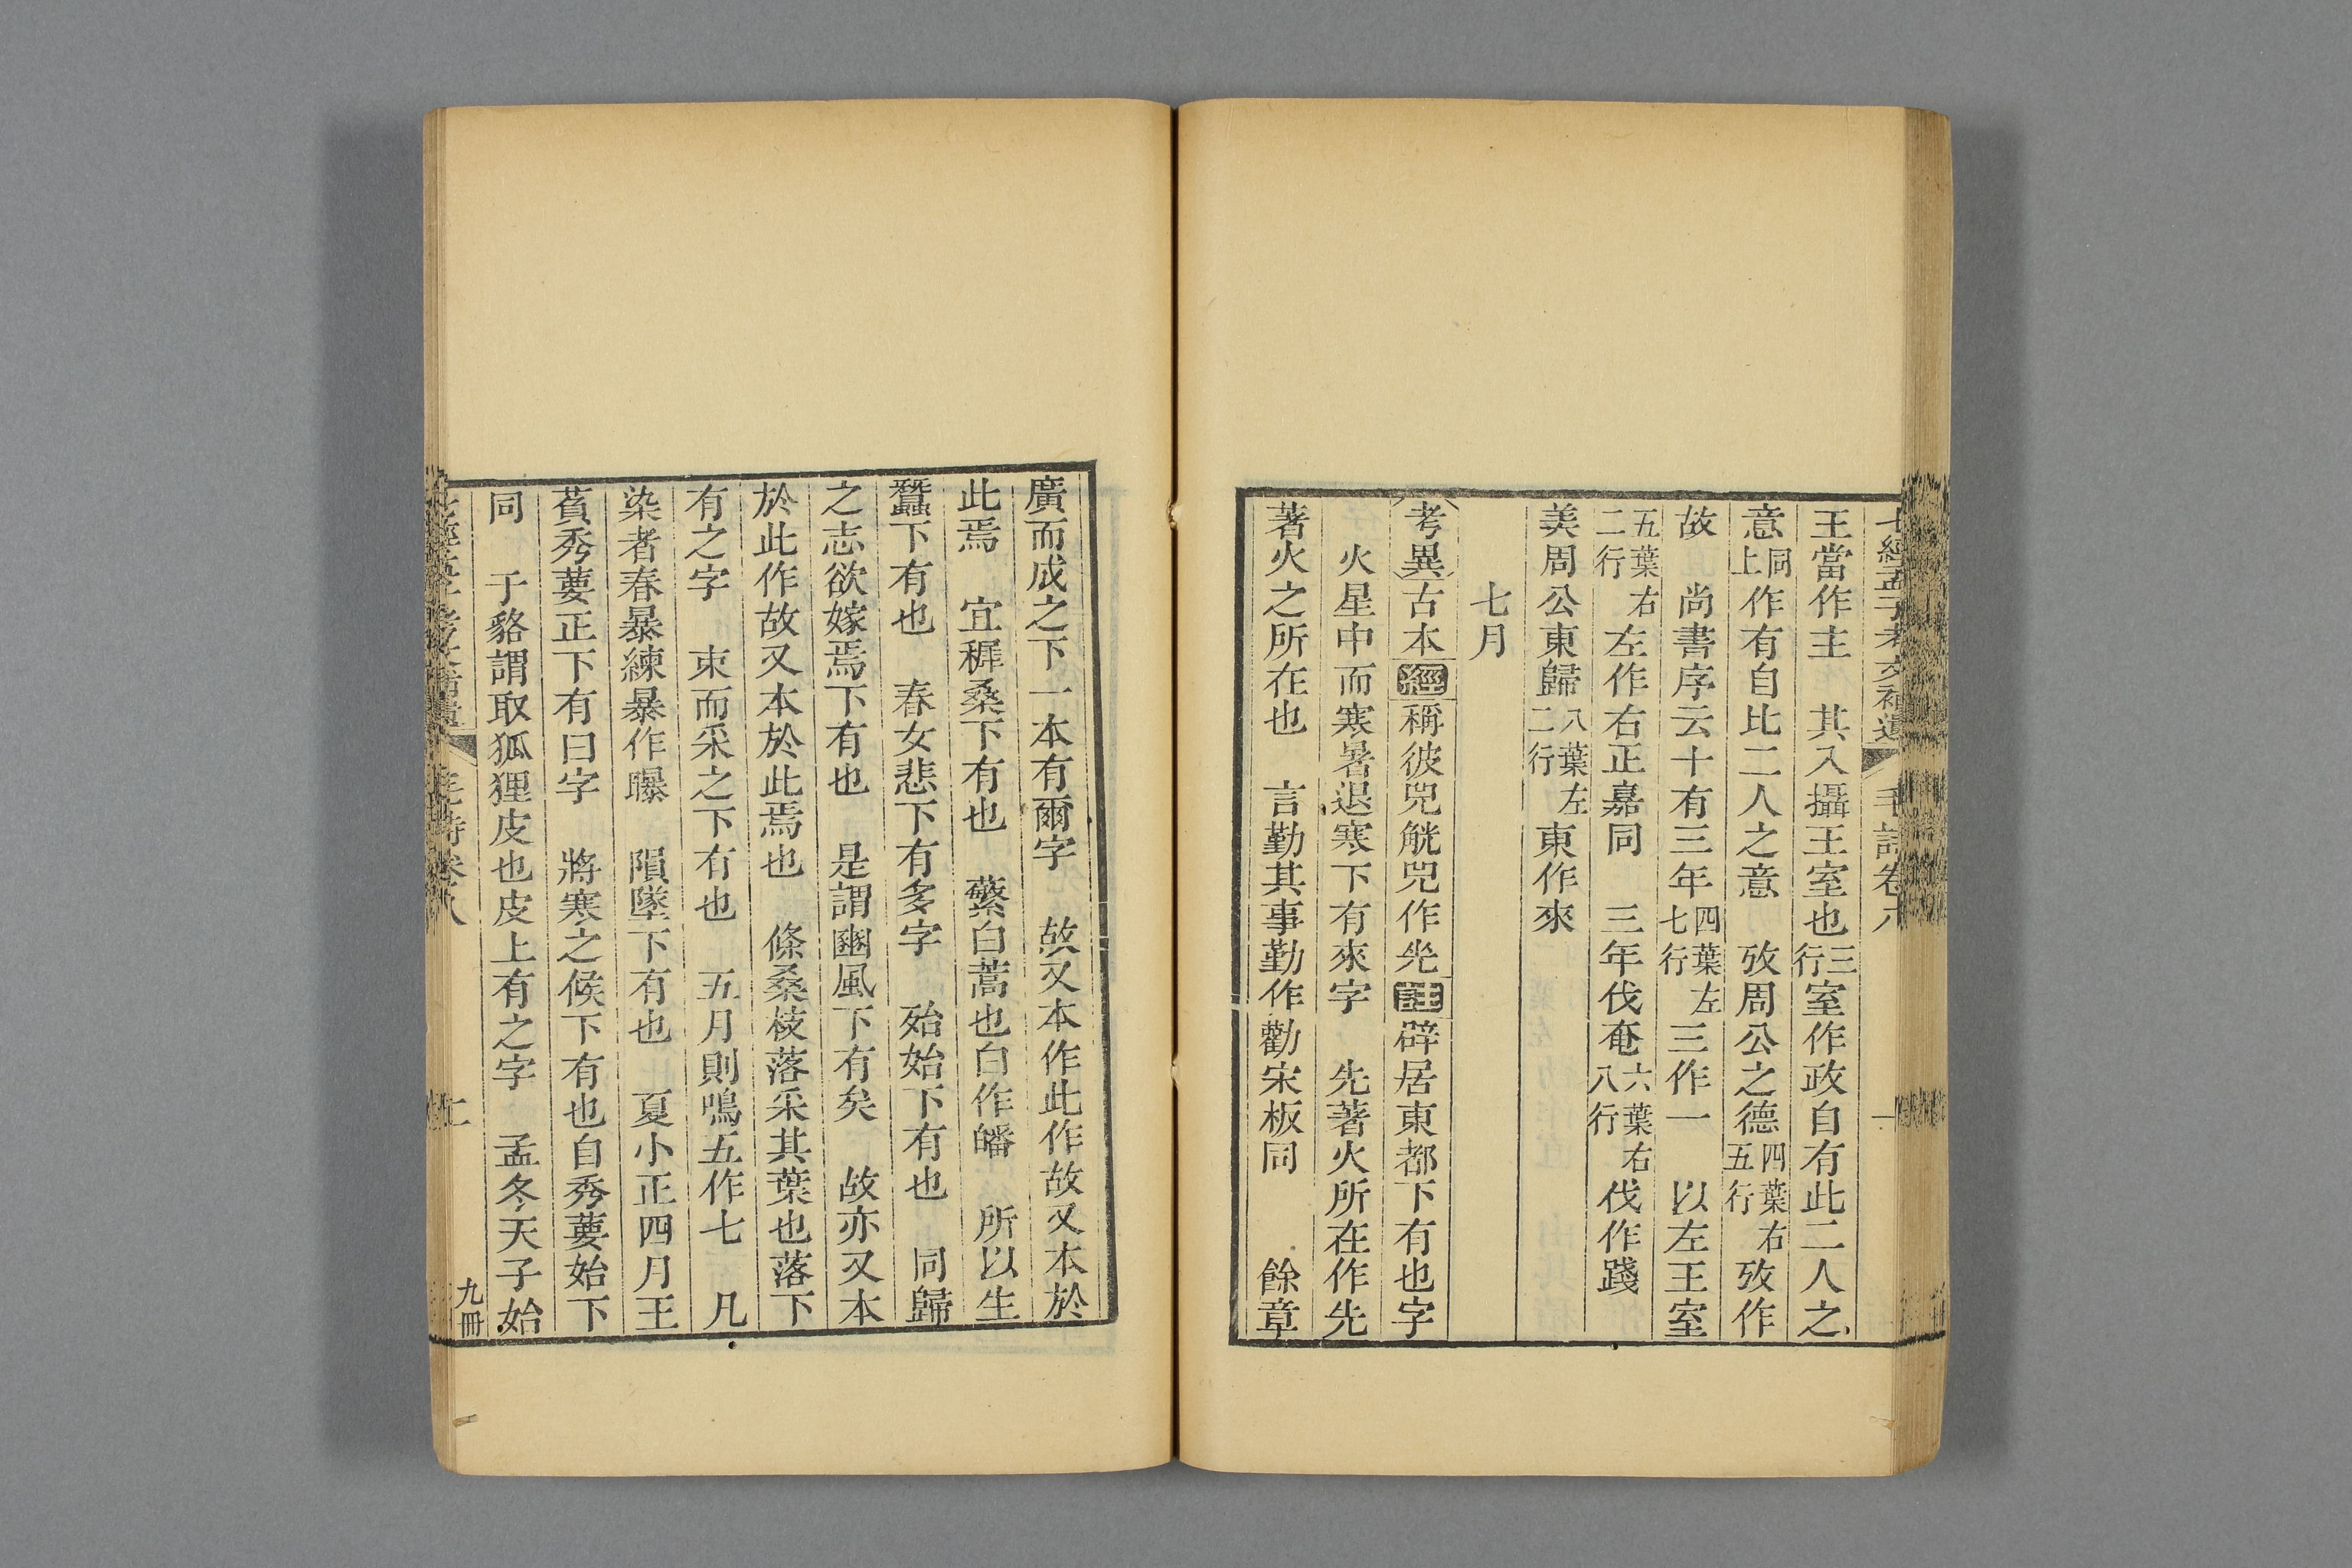 七經孟子考文補遺 毛詩卷八 一
王當作主 其入攝王室也三行室作政自有此二人之
意同上作有自比二人之意 攷周公之德四葉右五行攷作
故 尚書序云十有三年四葉左七行三作一 以左王室
五葉右二行左作右正嘉同 三年伐奄六葉右八行伐作踐
美周公東歸八葉左二行東作來
七月
考異古本經稱彼兕觥兕作𠒅註辟居東都下有也字
火星中而寒暑退寒下有來字 先著火所在作先
著火之所在也 言勤其事勤作勸宋板同 餘章
廣而成之下一本有爾字 故又本作此作故又本於
此焉 宜穉桑下有也 蘩白蒿也白作皤 所以生
蠶下有也 春女悲下有多字 殆始下有也 同歸
之志欲嫁焉下有也 是謂豳風下有矣 故亦又本
於此作故又本於此焉也 條桑枝落采其葉也落下
有之字 束而采之下有也 五月則鳴五作七 凡
染者春暴練暴作曝 隕墜下有也 夏小正四月王
萯秀葽正下有曰字 將寒之候下有也自秀葽始下
同 于貉謂取狐狸皮也皮上有之字 孟冬天子始
毛詩卷八 九冊